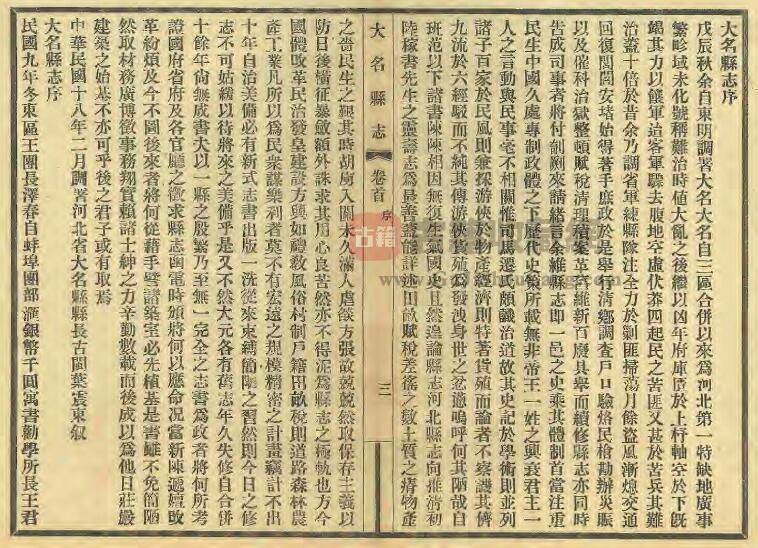 大名縣志序
戊辰秋余自東明調署大名大名自三區合併以來爲河北第一特缺地廣事
繁畛域未化號稱難治時值大亂之後繼以凶年府庫匱於上杼軸空於下旣
竭其力以餼軍迨客軍驟去腹地空虛伏莽四起民之苦匪又甚於苦兵其難
治蓋十倍於昔余乃調省軍練縣隊注全力於剿匪掃蕩月餘盜風漸熄交通
回復閭閻安堵始得著手庶政於是舉行清鄉調查戶口驗烙民槍勘辦災賑
以及催科治獄整頓賦稅清理積案革舊維新百廢具舉而續修縣志亦同時
告成司事者將付剞劂來請緒言余維縣志卽一邑之史乘其體制首當注重
民生中國久處專制政體之下歷代史策所載無非帝王一姓之興衰君主一
人之言動與民事毫不相關惟司馬遷氏頗識治道故其史記於學術則並列
諸子百家於民風則兼採游俠於物產經濟則特著貨殖而論者不察譏其儕
九流於六經駁而不純其傳游俠貨殖爲發洩身世之忿嗚呼何其陋哉自
班范以下諸書陳陳相因無復生氣國史且然遑論縣志河北縣志向推淸初
陸稼書先生之靈壽志爲最善蓋能詳述田畝賦稅差徭之數土質之瘠物產
大名縣志 卷首 序 三
之嗇民生之艱其時胡虜入關未久滿人虐燄方張故兢兢然取保存主義以
防日後橫征暴斂額外誅求其用心良苦然亦不得泥爲縣志之極軌也方今
國體改革民治發皇建設方興如禮教風俗村制戶籍田畝稅則道路森林農
產工業凡所以爲民衆謀樂利者莫不有宏遠之規模精密之計畫竊計不出
十年自治美備必有新式志書出版一洗從來束縛簡陋之習然則今日之修
志不可姑緩以待將來之美備乎是又不然大元各有舊志年久失修自合併
十餘年尙無成書夫以一縣之殷繁乃至無一完全之志書爲政者將何所考
證國府省府及各官廳之徵求縣志函電時頒將何以應命况當新陳遞嬗改
革紛煩及今不圖後來者將何從藉手譬諸築室必先植基是書雖不免簡陋
然取材務廣博徵事務翔實賴諸士紳之力辛勤數載而後成以爲他日莊嚴
建築之始基不亦可乎後之君子或有取焉
中華民國十八年二月調署河北省大名縣縣長古閩葉震東叙
大名縣志序
民國九年冬東區王團長澤春自蚌埠團部滙銀幣千圓寓書勸學所長王君
古籍